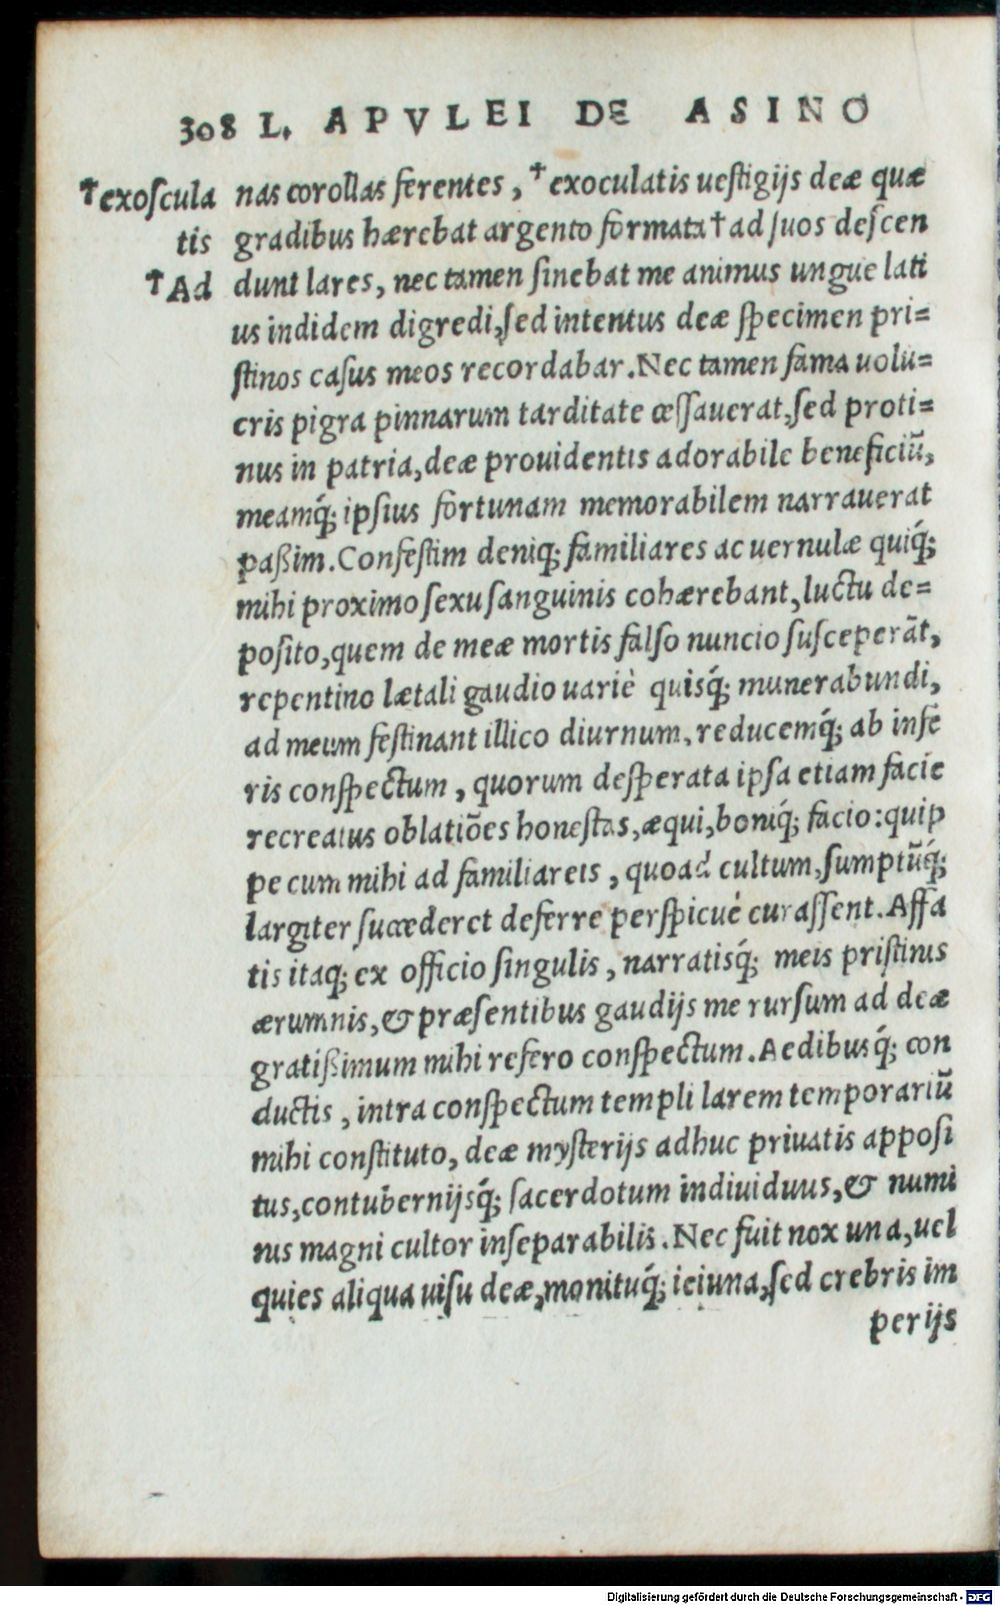 308 L. APVLEI DE ASINO
†exoscula nas corollas ferentes, †exoculatis uestigijs deæ quæ
tis gradibus hærebat argento formata † ad suos descen
†Ad dunt lares, nec tamen sinebat me animus ungue lati
us indidem digredi, sed intentus deæ specimen pri=
stinos casus meos recordabar. Nec tamen fama uolu=
cris pigra pinnarum tarditate cessauerat, sed proti=
nus in patria, deæ prouidentis adorabile beneficiũ,
meamq́; ipsius fortunam memorabilem narrauerat
paßim. Confestim deniq; familiares ac uernulæ quiq́;
mihi proximo sexu sanguinis cohærebant, luctu de=
posito, quem de meæ mortis falso nuncio susceperãt,
repentino lætali gaudio uariè quisq́; munerabundi,
ad meum festinant illico diurnum, reducemq́; ab infe
ris conspectum, quorum desperata ipsa etiam facie
recreatus oblatiões honestas, æqui, boniq́; facio: quip
pe cum mihi ad familiareis, quoad cultum, sumptũq́;
largiter succederet deferre perspicuè curassent. Affa
tis itaq; ex officio singulis, narratisq́; meis pristinis
ærumnis, & præsentibus gaudijs me rursum ad deæ
gratißimum mihi refero conspectum. Aedibusq́; con
ductis, intra conspectum templi larem temporariũ
mihi constituto, deæ mysterijs adhuc priuatis apposi
tus, contubernijsq́; sacerdotum indiuiduus, & numi
nis magni cultor inseparabilis. Nec fuit nox una, uel
quies aliqua uisu deæ, monituq́; ieiuna, sed crebris im
perijs
Digitalisierung gefördert durch die Deutsche Forschungsgemeinschaft - DFG